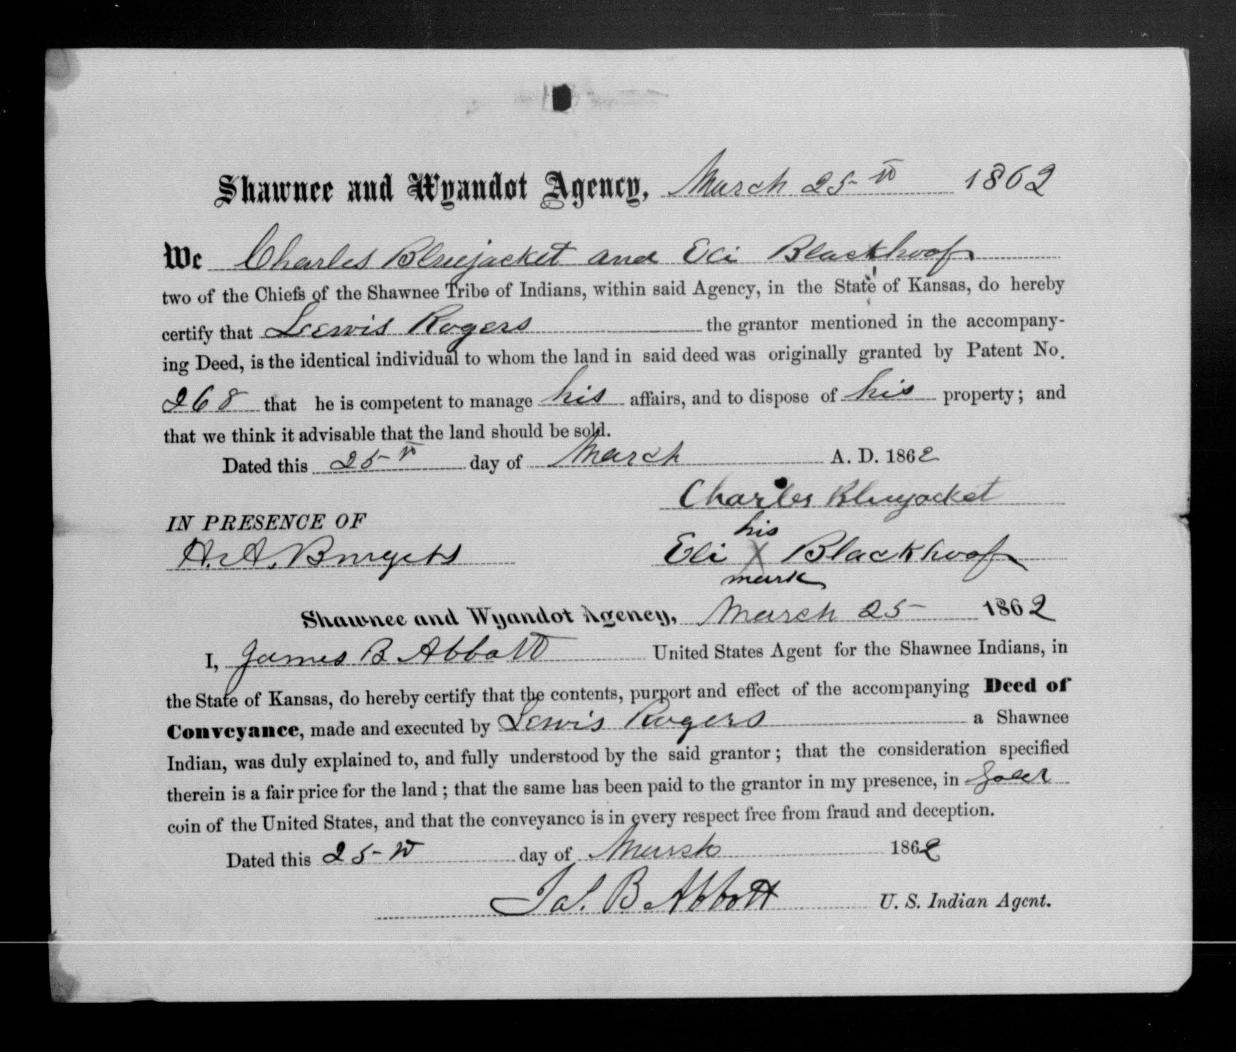 Shawnee and Wyandot Agency, March 25th 1862
We Charles Bluejacket and Eli Blackhoof
two of the Chiefs of the Shawnee Tribe of Indians, within said Agency, in the State of Kansas, do hereby
certify that Lewis Rogers the grantor mentioned in the accompany-
ing Deed, is the identical individual to whom the land in said deed was originally granted by Patent No.
268 that he is competent to manage his affairs, and to dispose of his property; and
that we think it advisable that the land should be sold.
Dated this 25th day of March A. D. 1862
Charles Bluejacket
IN PRESENCE OF
his
H. A. Eli X Blackhoof
mark
Shawnee and Wyandot Agency, March 25 1862
I, James B Abbott United States Agent for the Shawnee Indians, in
the State of Kansas, do hereby certify that the contents, purport and effect of the accompanying Deed of
Conveyance, made and executed by Lewis Rogers a Shawnee
Indian, was duly explained to, and fully understood by the said grantor; that the consideration specified
therein is a fair price for the land; that the same has been paid to the grantor in my presence, in
coin of the United States, and that the conveyance is in every respect free from fraud and deception.
Dated this 25th day of March 1862
Jas. B Abbott U. S. Indian Agent.